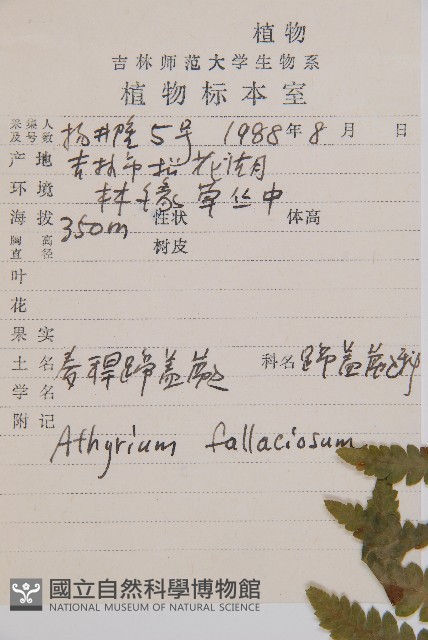 植物
吉林师范大学生物系
植物标本室
采集人及编号数 杨井隆 5号 1988年8月 日
产地 吉林市松花湖
环境 林缘草丛中
海拔 350m 性状 体高
胸高直径 树皮
叶
花
果实
土名 蹄盖蕨 科名 蹄盖蕨科
学名
附记
Athyrium fallaciosum
國立自然科學博物館
NATIONAL MUSEUM OF NATURAL SCIENCE